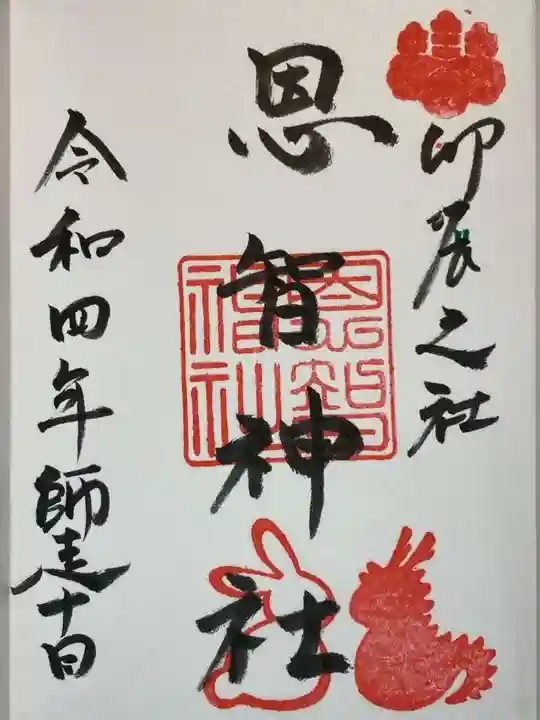 卯辰之社
恩智神社
恩智神社
令和四年師走十日